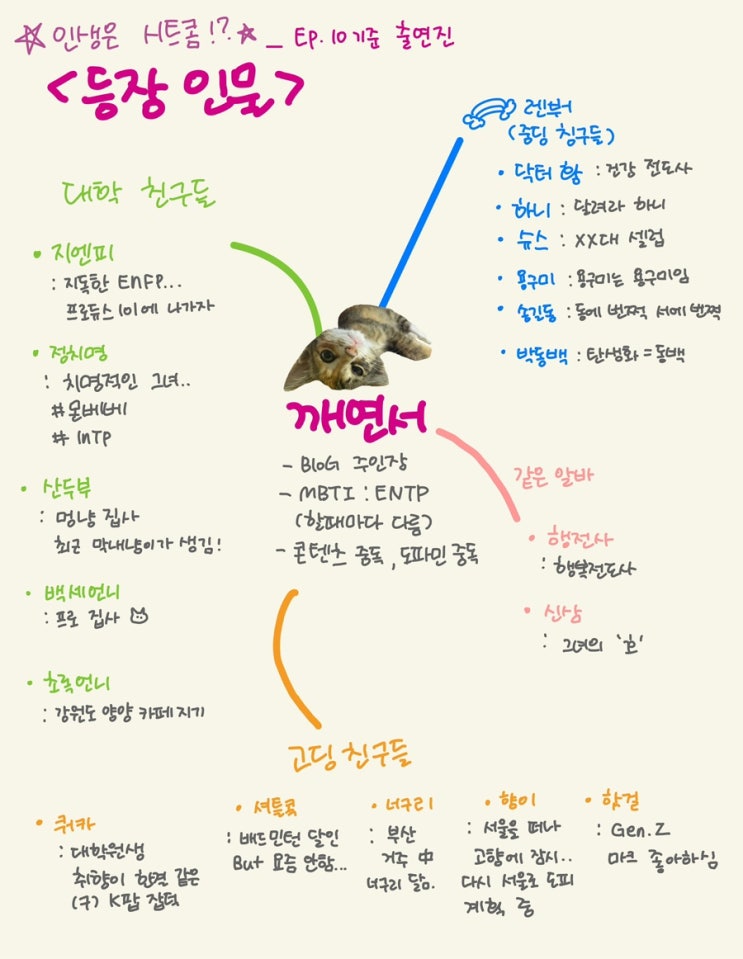 ☆인생은 시트콤!?★ _ EP.10기준 출연진
<등장 인물>
대학 친구들
• 지엔피
: 지독한 ENFP...
프로듀스101에 나가자
• 정치명
: 치명적인 그녀..
#몬베베
# INTP
• 산두부
: 멍냥 집사
최근 막내냥이가 생김!
• 백세언니
: 프로 집사
• 초록언니
: 강원도 양양 카페지기
렌부어
(중딩 칭구들)
• 닥터 황 : 건강 전도사
• 하니 : 달려라 하니
• 슈스 : XX대 셀럽
• 용구미 : 용구미는 용구미임
• 송길동 : 동에 번쩍 서에 번쩍
• 박동백 : 탄생화 = 동백
깨연서
- BloG 주인장
- MBTI : ENTP
(할때마다 다름)
- 콘텐츠 중독, 도파민 중독
같은 알바
• 행전사
: 행복전도사
• 신삼
: 그녀의 '호'
고딩친구들
• 쿼카
: 대학원생
취향이 한결 같은
(구) K팝 잡덕
• 셔틀콕
: 배드민턴 달인
But 요즘 안함...
• 너구리
: 부산
거주 中
너구리 닮.
• 향이
: 서울을 떠나
고향에 잠시..
다시 서울로 도피
계획 중
• 핫걸
: Gen.Z
마크 좋아하심